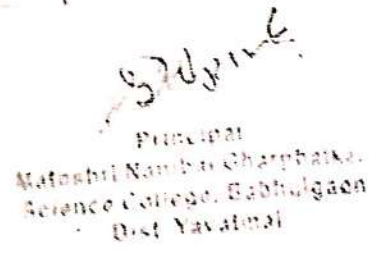 Principal
Matoshri Nanibai Gharphalkar
Science College, Babhulgaon
Dist Yavatmal